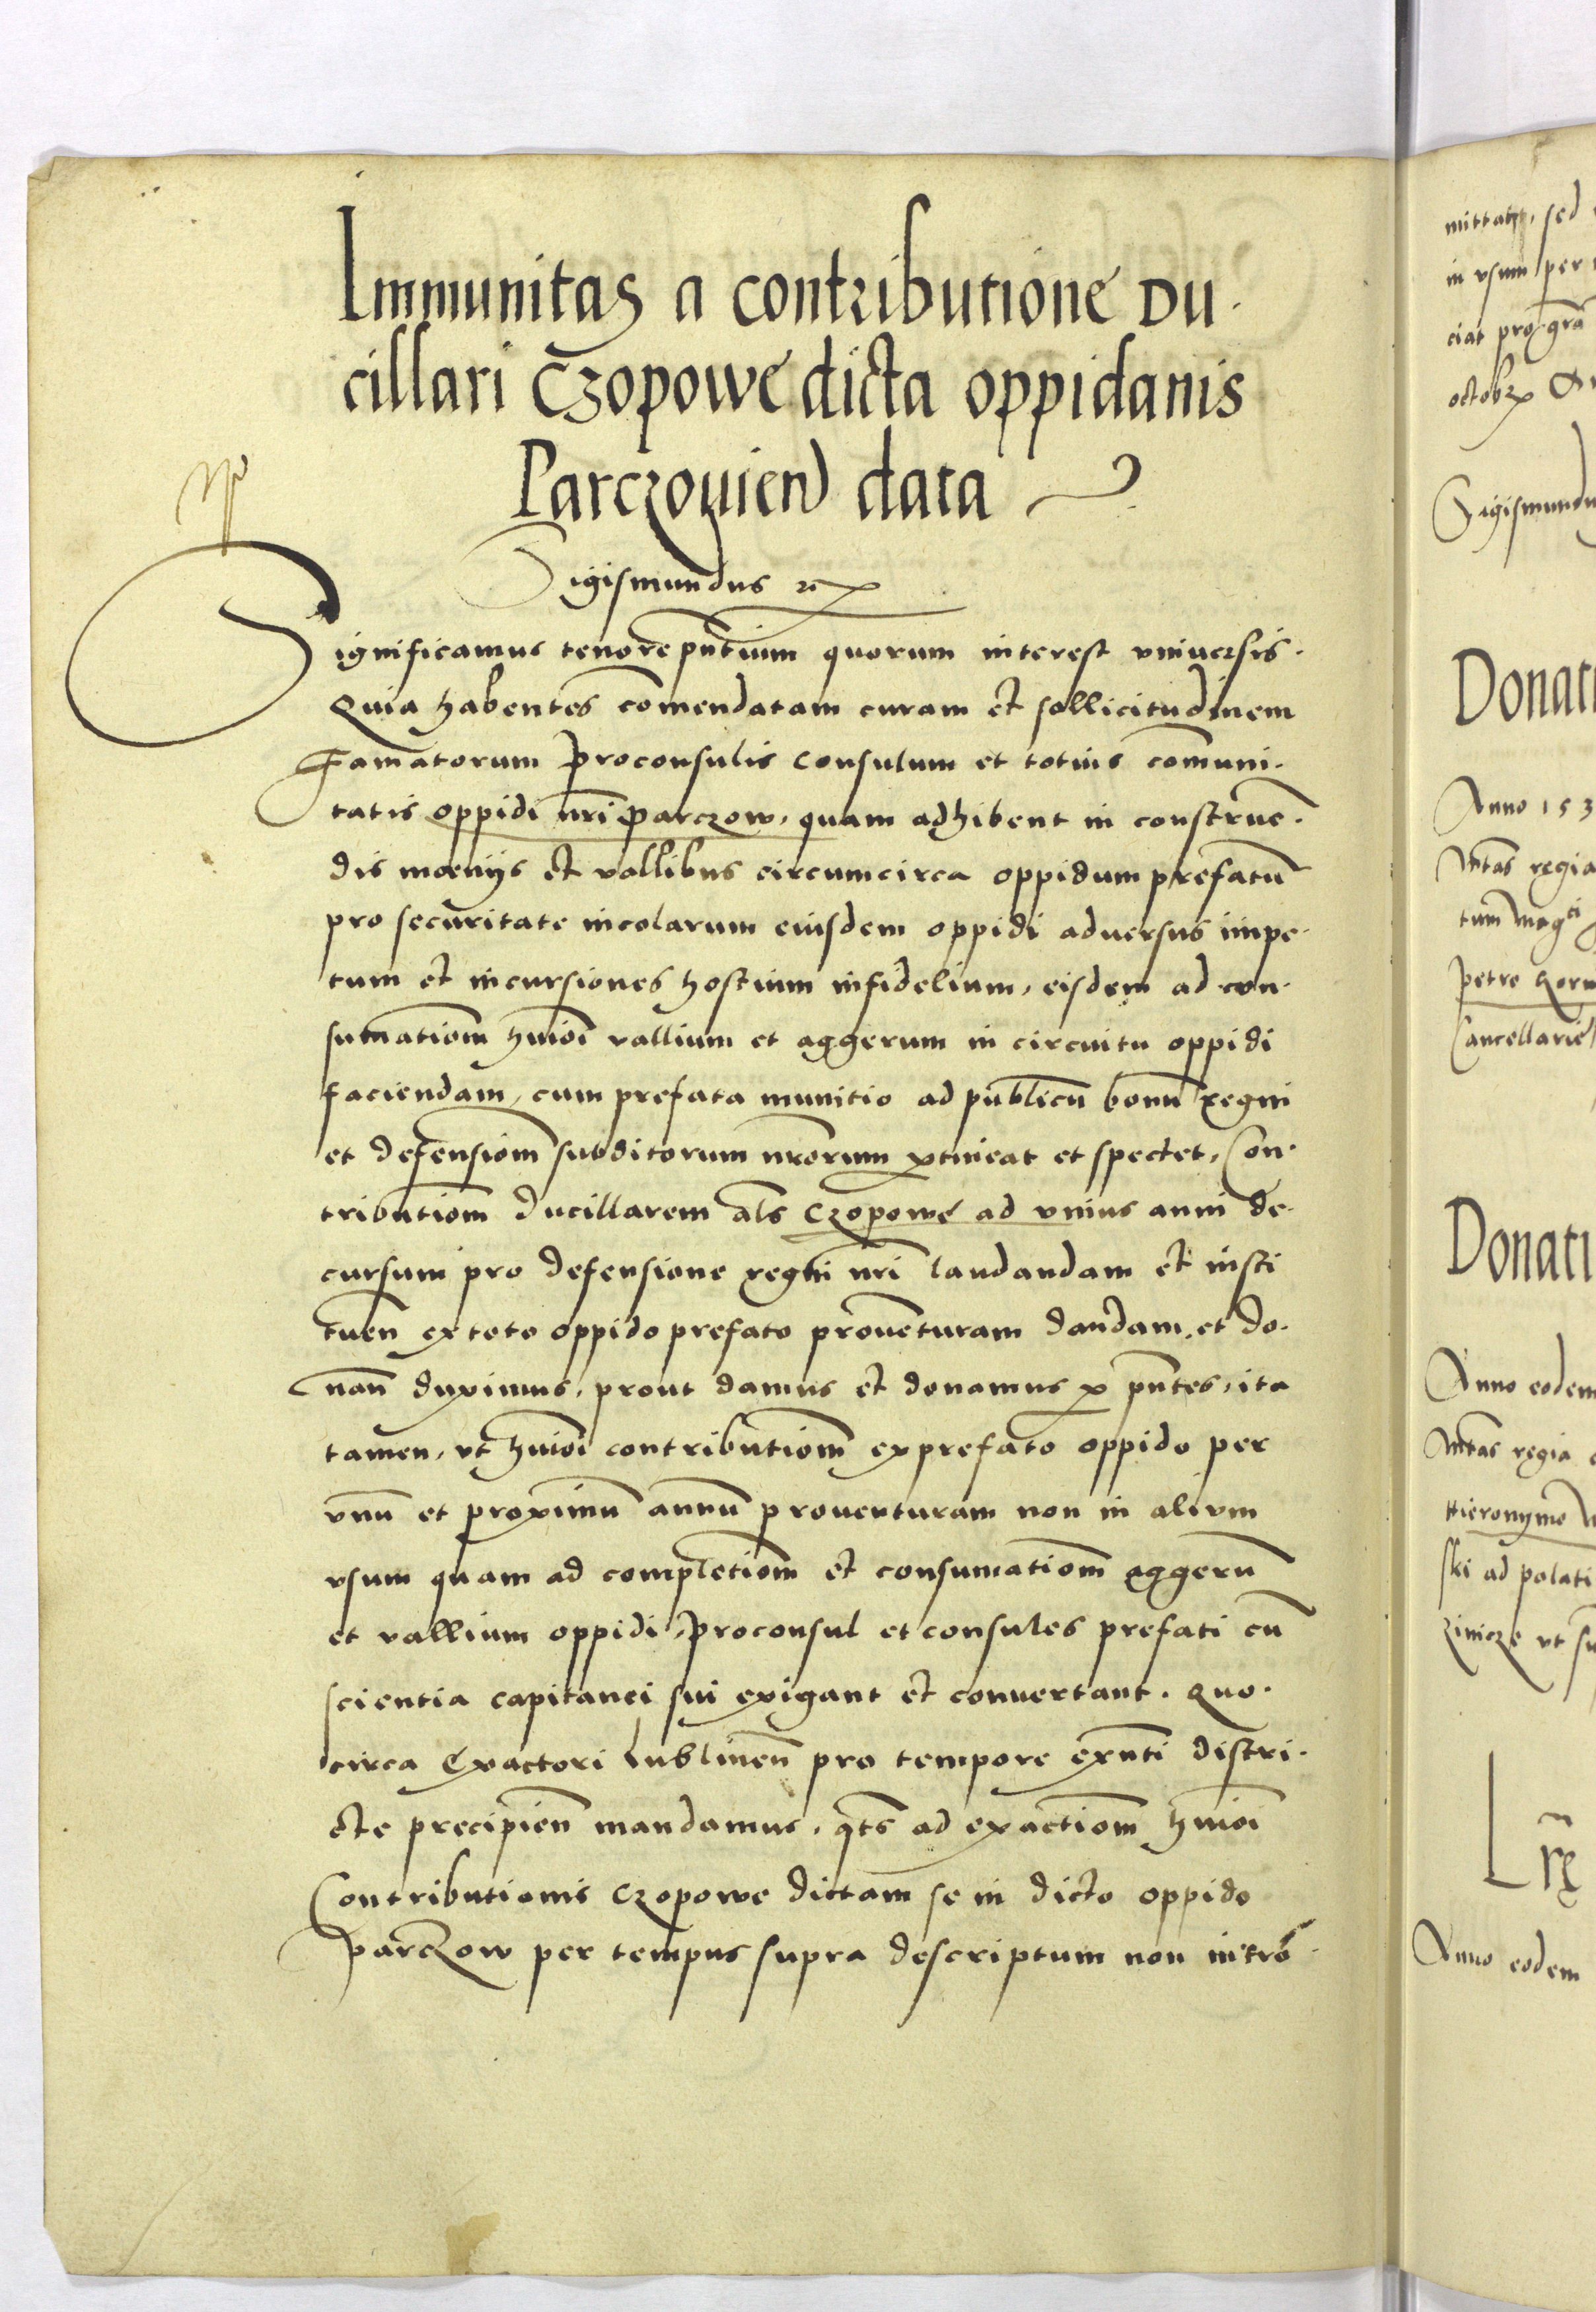 Immunitas a contributione du-
cillari Czopowe dicta oppidanis
Parczouien data
Sigismundus rex
Significamus tenore pñtium quorum interest vniuersis.
Quia habentes comendatam curam et sollicitudinem
Famatorum proconsulis consulum et totius comuni-
tatis oppidi nri parczow, quam adhibent in construe-
dis moenijs et vallibus circumcirca oppidum prefatũ
pro securitate incolarum eiusdem oppidi aduersus impe-
tum et incursiones hostium infidelium, eisdem ad con-
sumationem hmõi vallium et aggerum in circuitu oppidi
faciendam, cum prefata munitio ad publicũ bonũ regni
et defensiom subditorum nrorum ptineat et spectet, Con-
tributiom ducillarem als Czopowe ad vnius anni de-
cursum pro defensione regni nri laudandam et insti
tuen ex toto oppido prefato prouenturam dandam et do-
nan duximus, prout damus et donamus p pntes, ita
tamen, vt hmõi contributiom ex prefato oppido per
vnũ et proximũ annũ prouenturam non in alium
vsum quam ad completiom et consumatiom aggerũ
et vallium oppidi, proconsul et consules prefati cũ
scientia capitanei sui exigant et conuertant. Quo-
circa Exactori Lublinen pro tempore exnti distri-
cte precipien mandamus, qts ad exactiom hmõi
Contributionis Czopowe dictam se in dicto oppido
parczow per tempus supra descriptum non intro-
mittat, sed
in vsum per
ciat pro grã
octobr
Sigismundu
Donati
Anno 153
Mtas regia
tum mag
petro
Cancellarie
Donati
Anno eodem
Mtas regia
Hieronymo
ski ad palati
vt
Lrę
Anno eodem